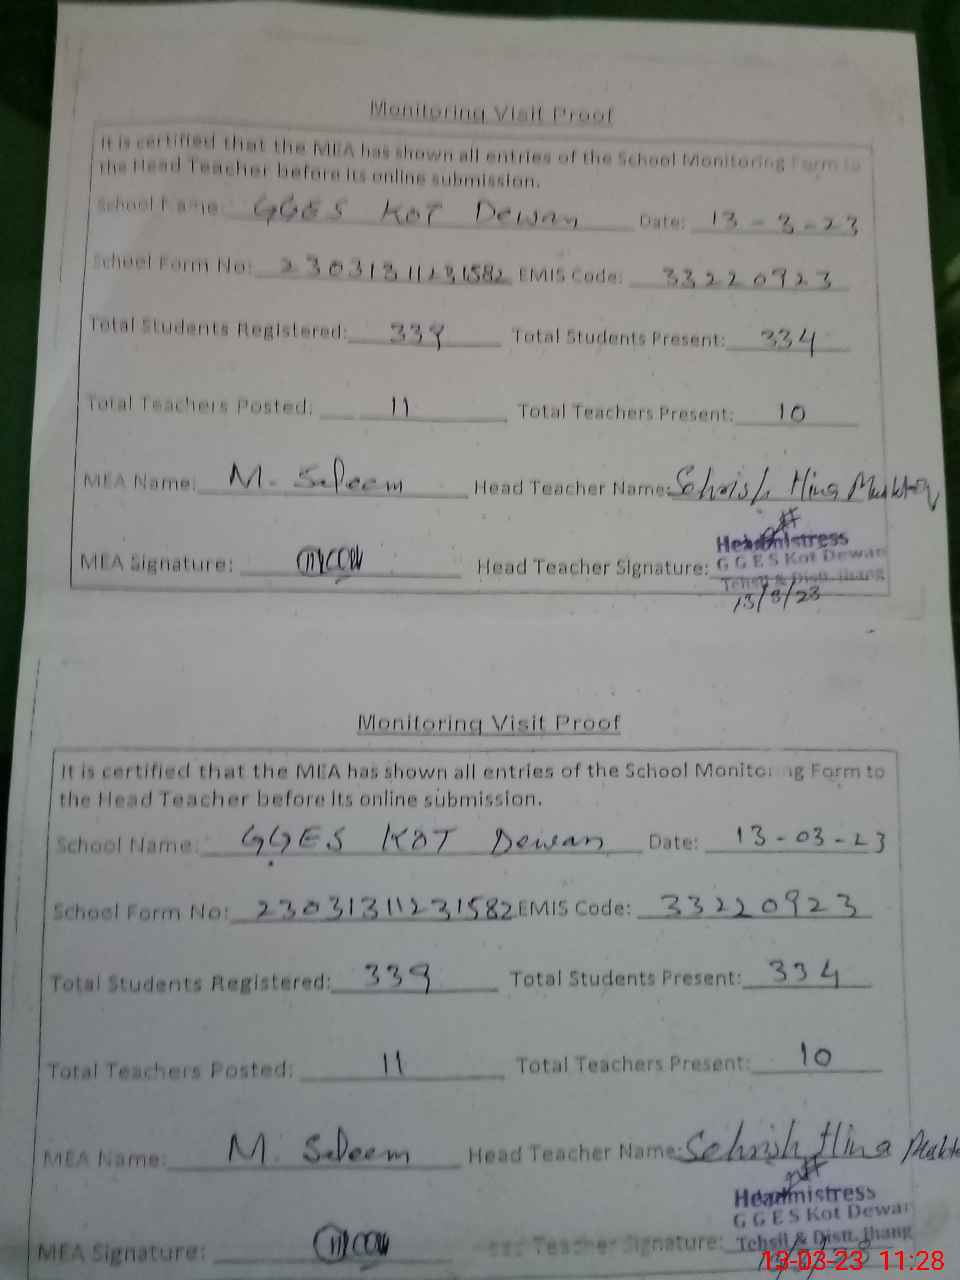 Monitoring Visit Proof
It is certified that the MEA has shown all entries of the School Monitoring Form to
the Head Teacher before its online submission.
School Name: GGES KOT Dewan Date: 13-3-23
School Form No: 23031311231582 EMIS Code: 33220923
Total Students Registered: 339 Total Students Present: 334
Total Teachers Posted: 11 Total Teachers Present: 10
MEA Name: M. Saleem Head Teacher Name: Sehrish Hina Mukhtar
MEA Signature: Head Teacher Signature:
Headmistress
G G E S Kot Dewan
Tehsil & Distt. Jhang
13/3/23
Monitoring Visit Proof
It is certified that the MEA has shown all entries of the School Monitoring Form to
the Head Teacher before its online submission.
School Name: GGES KOT Dewan Date: 13-03-23
School Form No: 23031311231582 EMIS Code: 33220923
Total Students Registered: 339 Total Students Present: 334
Total Teachers Posted: 11 Total Teachers Present: 10
MEA Name: M. Saleem Head Teacher Name: Sehrish Hina
MEA Signature: Head Teacher Signature:
Headmistress
G G E S Kot Dewan
Tehsil & Distt. Jhang
13-03-23 11:28